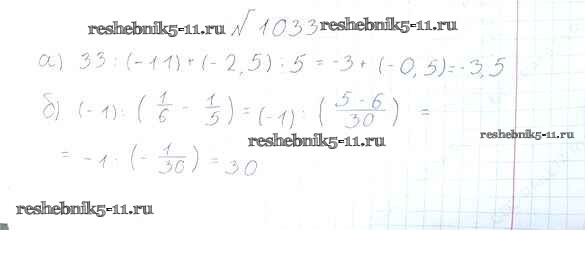 reshebnik5-11.ru № 1033 reshebnik5-11.ru
а) 33 : (-11) + (-2,5) : 5 = -3 + (-0,5) = -3,5
б) (-1) : (1/6 - 1/5) = (-1) : (5-6/30) =
reshebnik5-11.ru reshebnik5-11.ru
= -1 : (-1/30) = 30
reshebnik5-11.ru